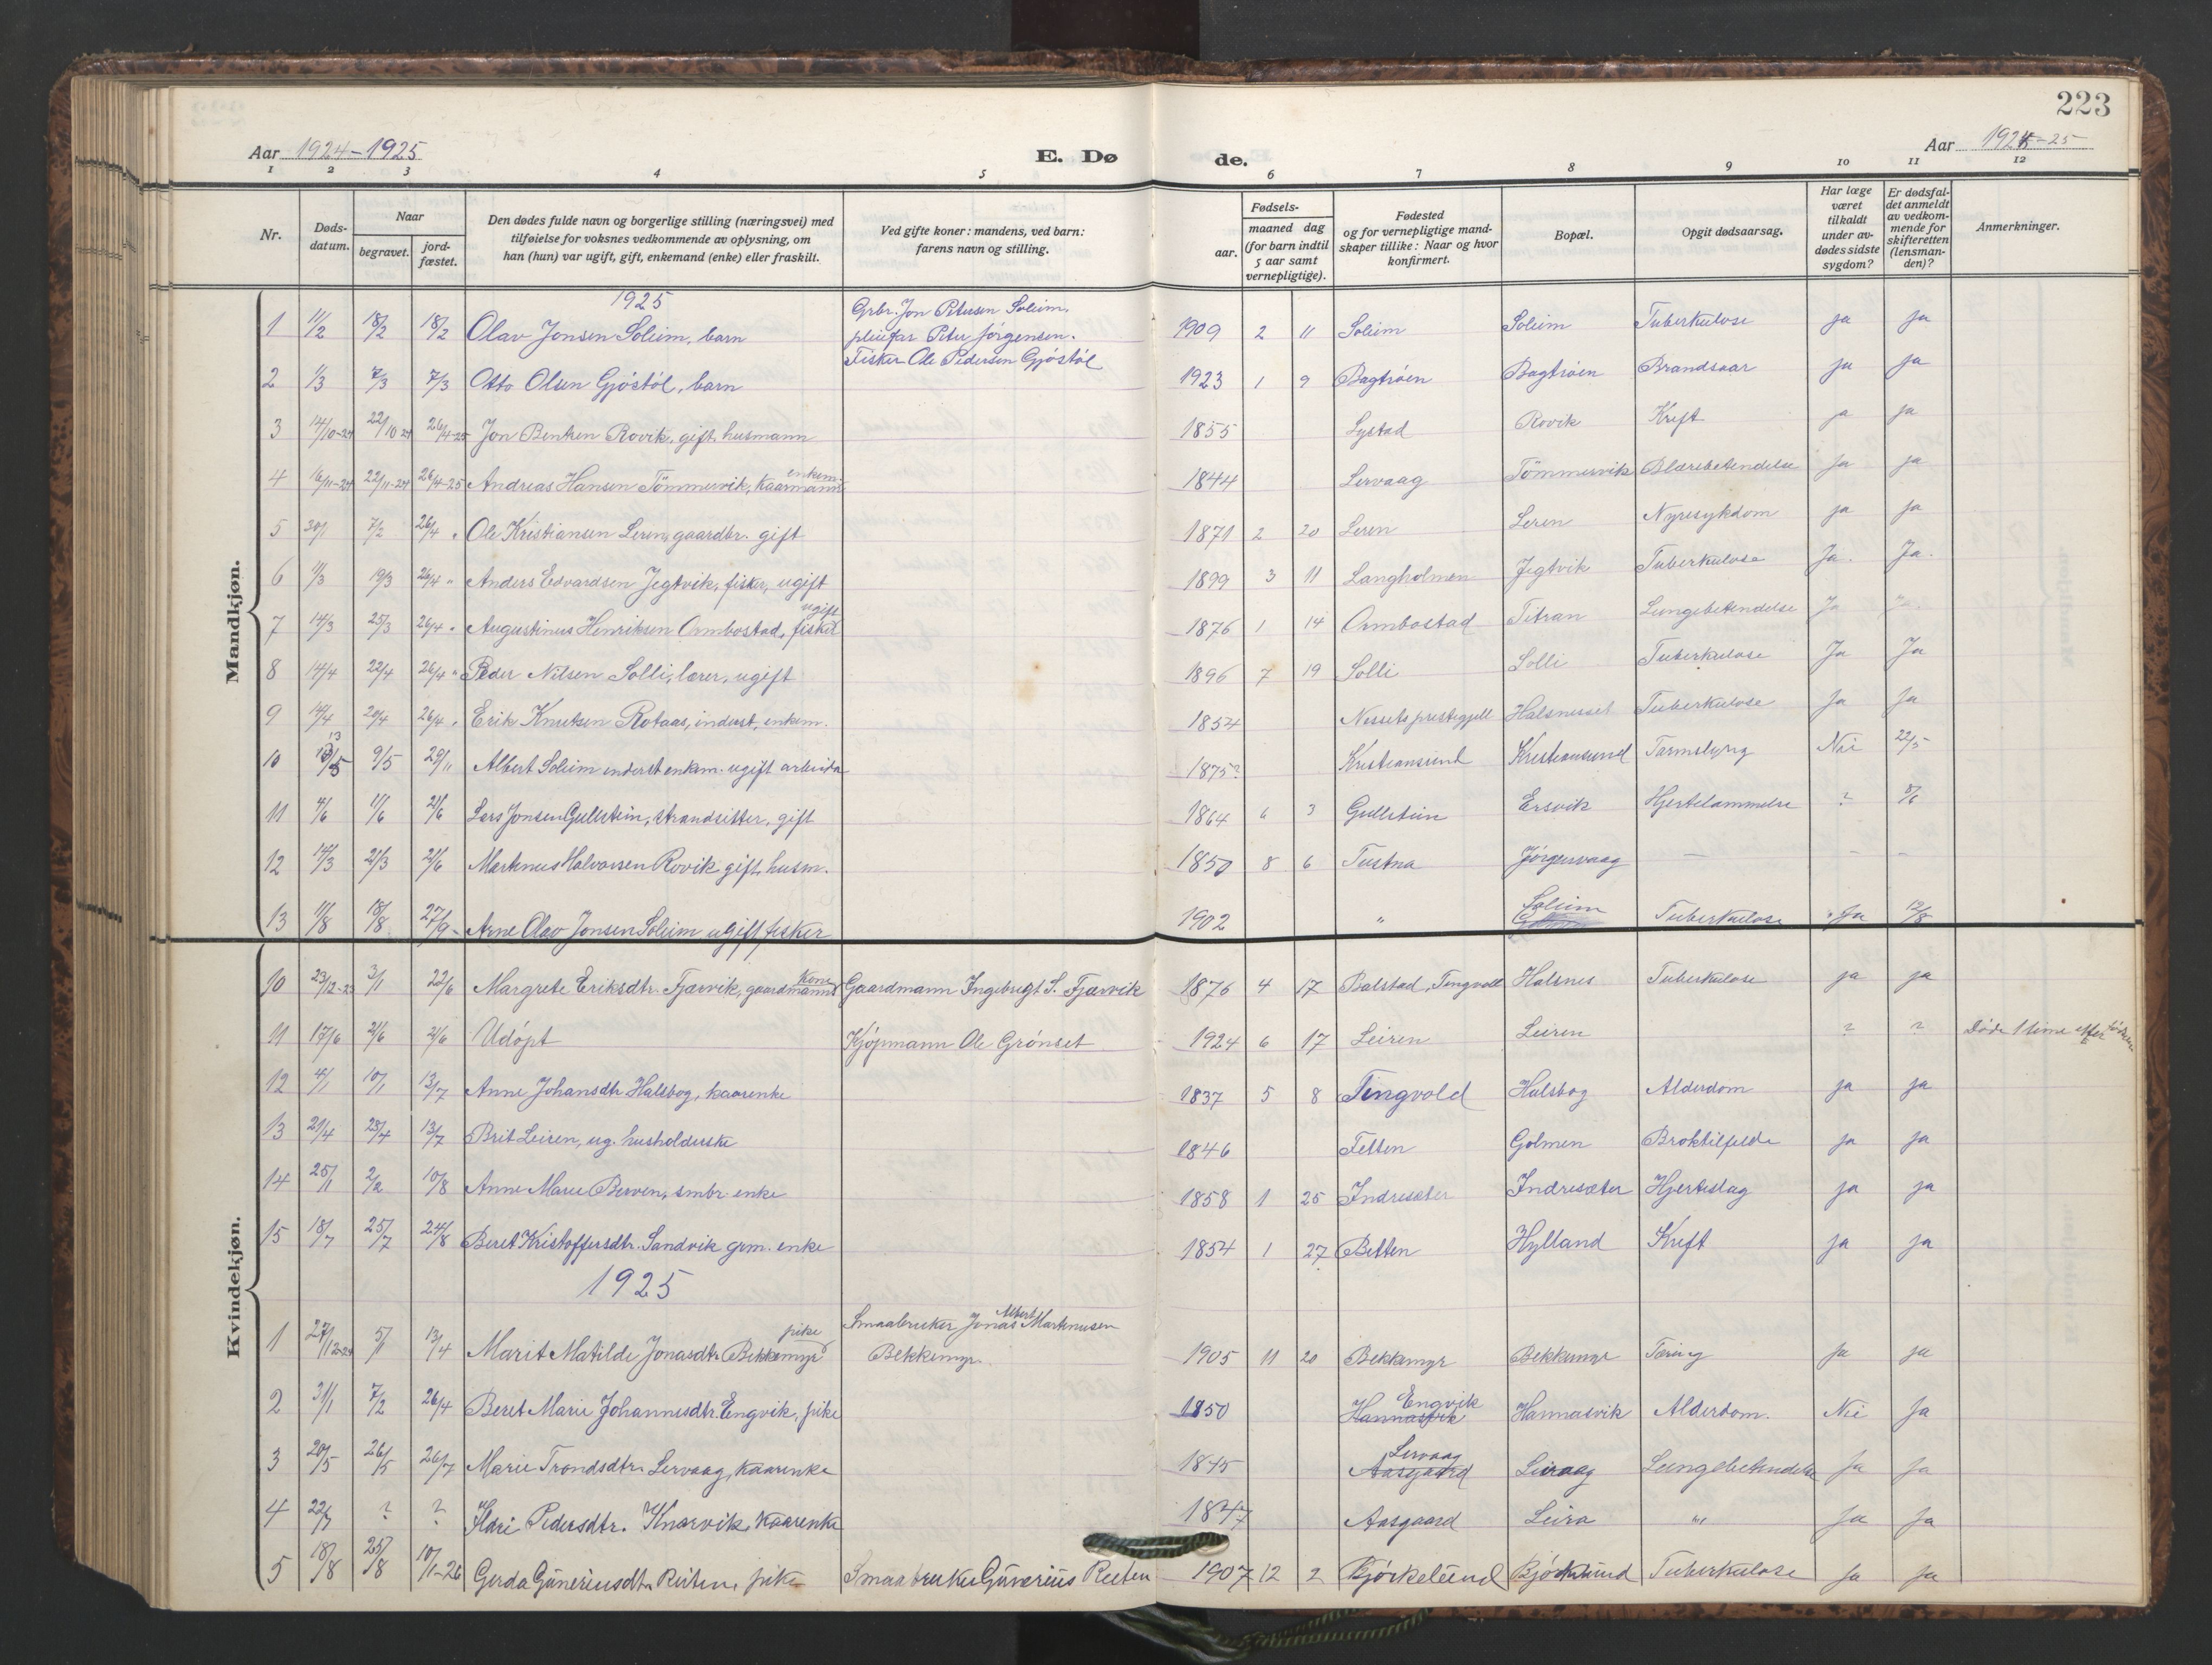 223
Aar 1924-1925 E. Dø de. Aar 1924-25
1 2 3 4 5 6 7 8 9 10 11 12
Nr. Døds-datum. Naar begravet. jord-fæstet. Den dødes fulde navn og borgerlige stilling (næringsvei) med tilføielse for voksnes vedkommende av oplysning, om han (hun) var ugift, gift, enkemand (enke) eller fraskilt. Ved gifte koner: mandens, ved barn: farens navn og stilling. Fødsels- aar. maaned dag (for barn indtil 5 aar samt vernepligtige). Fødested og for vernepligtige mand-skaper tillike: Naar og hvor konfirmert. Bopæl. Opgit dødsaarsag. Har læge været tilkaldt under av-dødes sidste sygdom? Er dødsfal-det anmeldt av vedkom-mende for skifteretten (lensman-den)? Anmerkninger.
Mandkjøn.
1925
1 11/2 18/2 18/2 Olav Jonsen Soleim, barn Grbr. Jon Petersen Soleim, pleiefar Peter Jørgensen. 1909 2 11 Soleim Soleim Tuberkulose ja ja
2 1/3 7/3 7/3 Otto Olsen Gjøstøl, barn Fisker Ole Pedersen Gjøstøl 1923 1 9 Bagtrøen Bagtrøen Brandsaar ja ja
3 14/10-24 22/10 24 26/4-25 Jon Bentsen Rovik, gift, husmann 1855 Lystad Rovik Kreft ja ja
4 16/11-24 22/11-24 26/4-25 Andreas Hansen Tömmervik, kaarmann enkem. 1844 Lervaag Tömmervik Blærebetendelse ja ja
5 30/1 7/2 26/4 " Ole Kristiansen Leren, gaardbr. gift 1871 2 20 Leren Leren Nyresykdom ja ja
6 11/3 19/3 26/4 " Anders Edvardsen Jegtvik, fisker, ugift 1899 3 11 Langholmen Jegtvik Tuberkulose Ja. Ja.
7 14/3 25/3 26/4 " Augustinus Henriksen Ormbostad, fisker ugift 1876 1 14 Ormbostad Titran Lungebetendelse Ja Ja.
8 14/4 22/4 26/4 " Peder Nilsen Solli, lærer, ugift 1896 7 19 Solli Solli Tuberkulose Ja Ja
9 14/4 20/4 26/4 " Erik Knutsen Rotaas, inderst, enkem. 1854 Nessets prestegjell Halsnesset Tuberkulose Ja Ja
10 13/5 9/5 29/11 Albert Soleim inderst enkem. ugift arbeider 1875? Kristiansund Kristiansund Tarmslyng Nei 22/5
11 4/6 11/6 21/6 Lars Jonsen Gullstein, strandsitter, gift 1864 6 3 Gullstein Ersvik Hjertelammelse ?
12 14/3 21/3 21/6 Martinus Halvorsen Rovik gift husm. 1850 8 6 Tustna Jørgenvaag — — —
13 11/8 18/8 27/9 - Arne Olav Jonsen Soleim ugift fisker 1902 " Soleim Tuberkulose Ja 12/8
Kvindekjøn.
10 23/12-23 3/1 22/6 Margrete Eriksdtr. Fjærvik, gaardmanns kone Gaardmann Ingebrigt S. Fjærvik 1876 4 17 Balstad, Tingvoll Halsnes Tuberkulose ja ja
11 17/6 21/6 21/6 Udøpt Kjøpmann Ole Grønset 1924 6 17 Leiren Leiren ? ? Døde 1 time efter fødselen
12 4/1 10/1 13/7 Anne Johansdtr Halsbog, kaarenke 1837 5 8 Tingvold Halsbog Alderdom ja ja
13 21/4 28/4 13/7 Brit Leiren, ug. husholderske 1846 Fetten Golmen Broktilfelde ja ja
14 25/1 2/2 10/8 Anne Marie Berven, smbr. enke 1858 1 25 Indresæter Indresæter Hjerteslag ja ja
15 18/7 25/7 24/8 Beret Kristoffersdtr. Sandvik grm. enke 1854 1 27 Betten Hylland Kreft ja ja
1925
1 27/12-24 5/1 13/4 Marit Matilde Jonasdtr Bekkemyr pike Smaabruker Jonas Albert Martinusen Bekkemyr. 1905 11 20 Bekkemyr Bekkemyr Tæring Ja ja
2 31/1 7/2 26/4 Beret Marie Johannesdtr. Engvik, pike 1850 Engvik Hannasvik Hannasvik Alderdom. Nei Ja
3 20/5 26/5 26/7 Marie Trondsdtr. Lervaag, kaarenke 1845 Lervaag Aasgaard Leivaag Lungebetendelse Ja Ja
4 22/7 ? ? Ildri Pedersdtr. Knarvik, kaarenke 1847 Aasgaard Leira " Ja Ja
5 18/8 25/8 10/1-26 Gerda Gunneriusdtr. Reiten, pike Smaabruker Gunerius Reiten 1907 12 2 Bjørkelund Bjørklund Tuberkulose Ja Ja